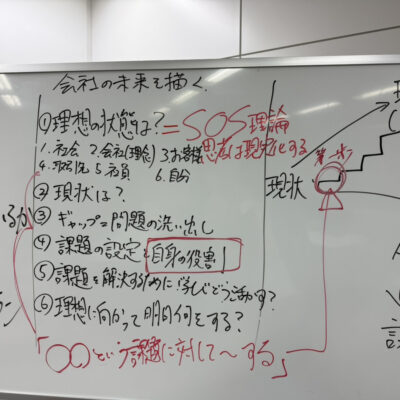 会社の未来を描く
①理想の状態は？=SOS理論
1.社会 2.会社(理念) 3.お客様 思考は現実化する
4.取引先 5.社員 6.自分
②現状は？
③ギャップ=問題の洗い出し
④課題の設定と自身の役割
⑤課題を解決するために学びどう活かす？
⑥理想に向かって明日何をする？
「○○という課題に対して〜する」
現状
第一歩
いるか
ラン